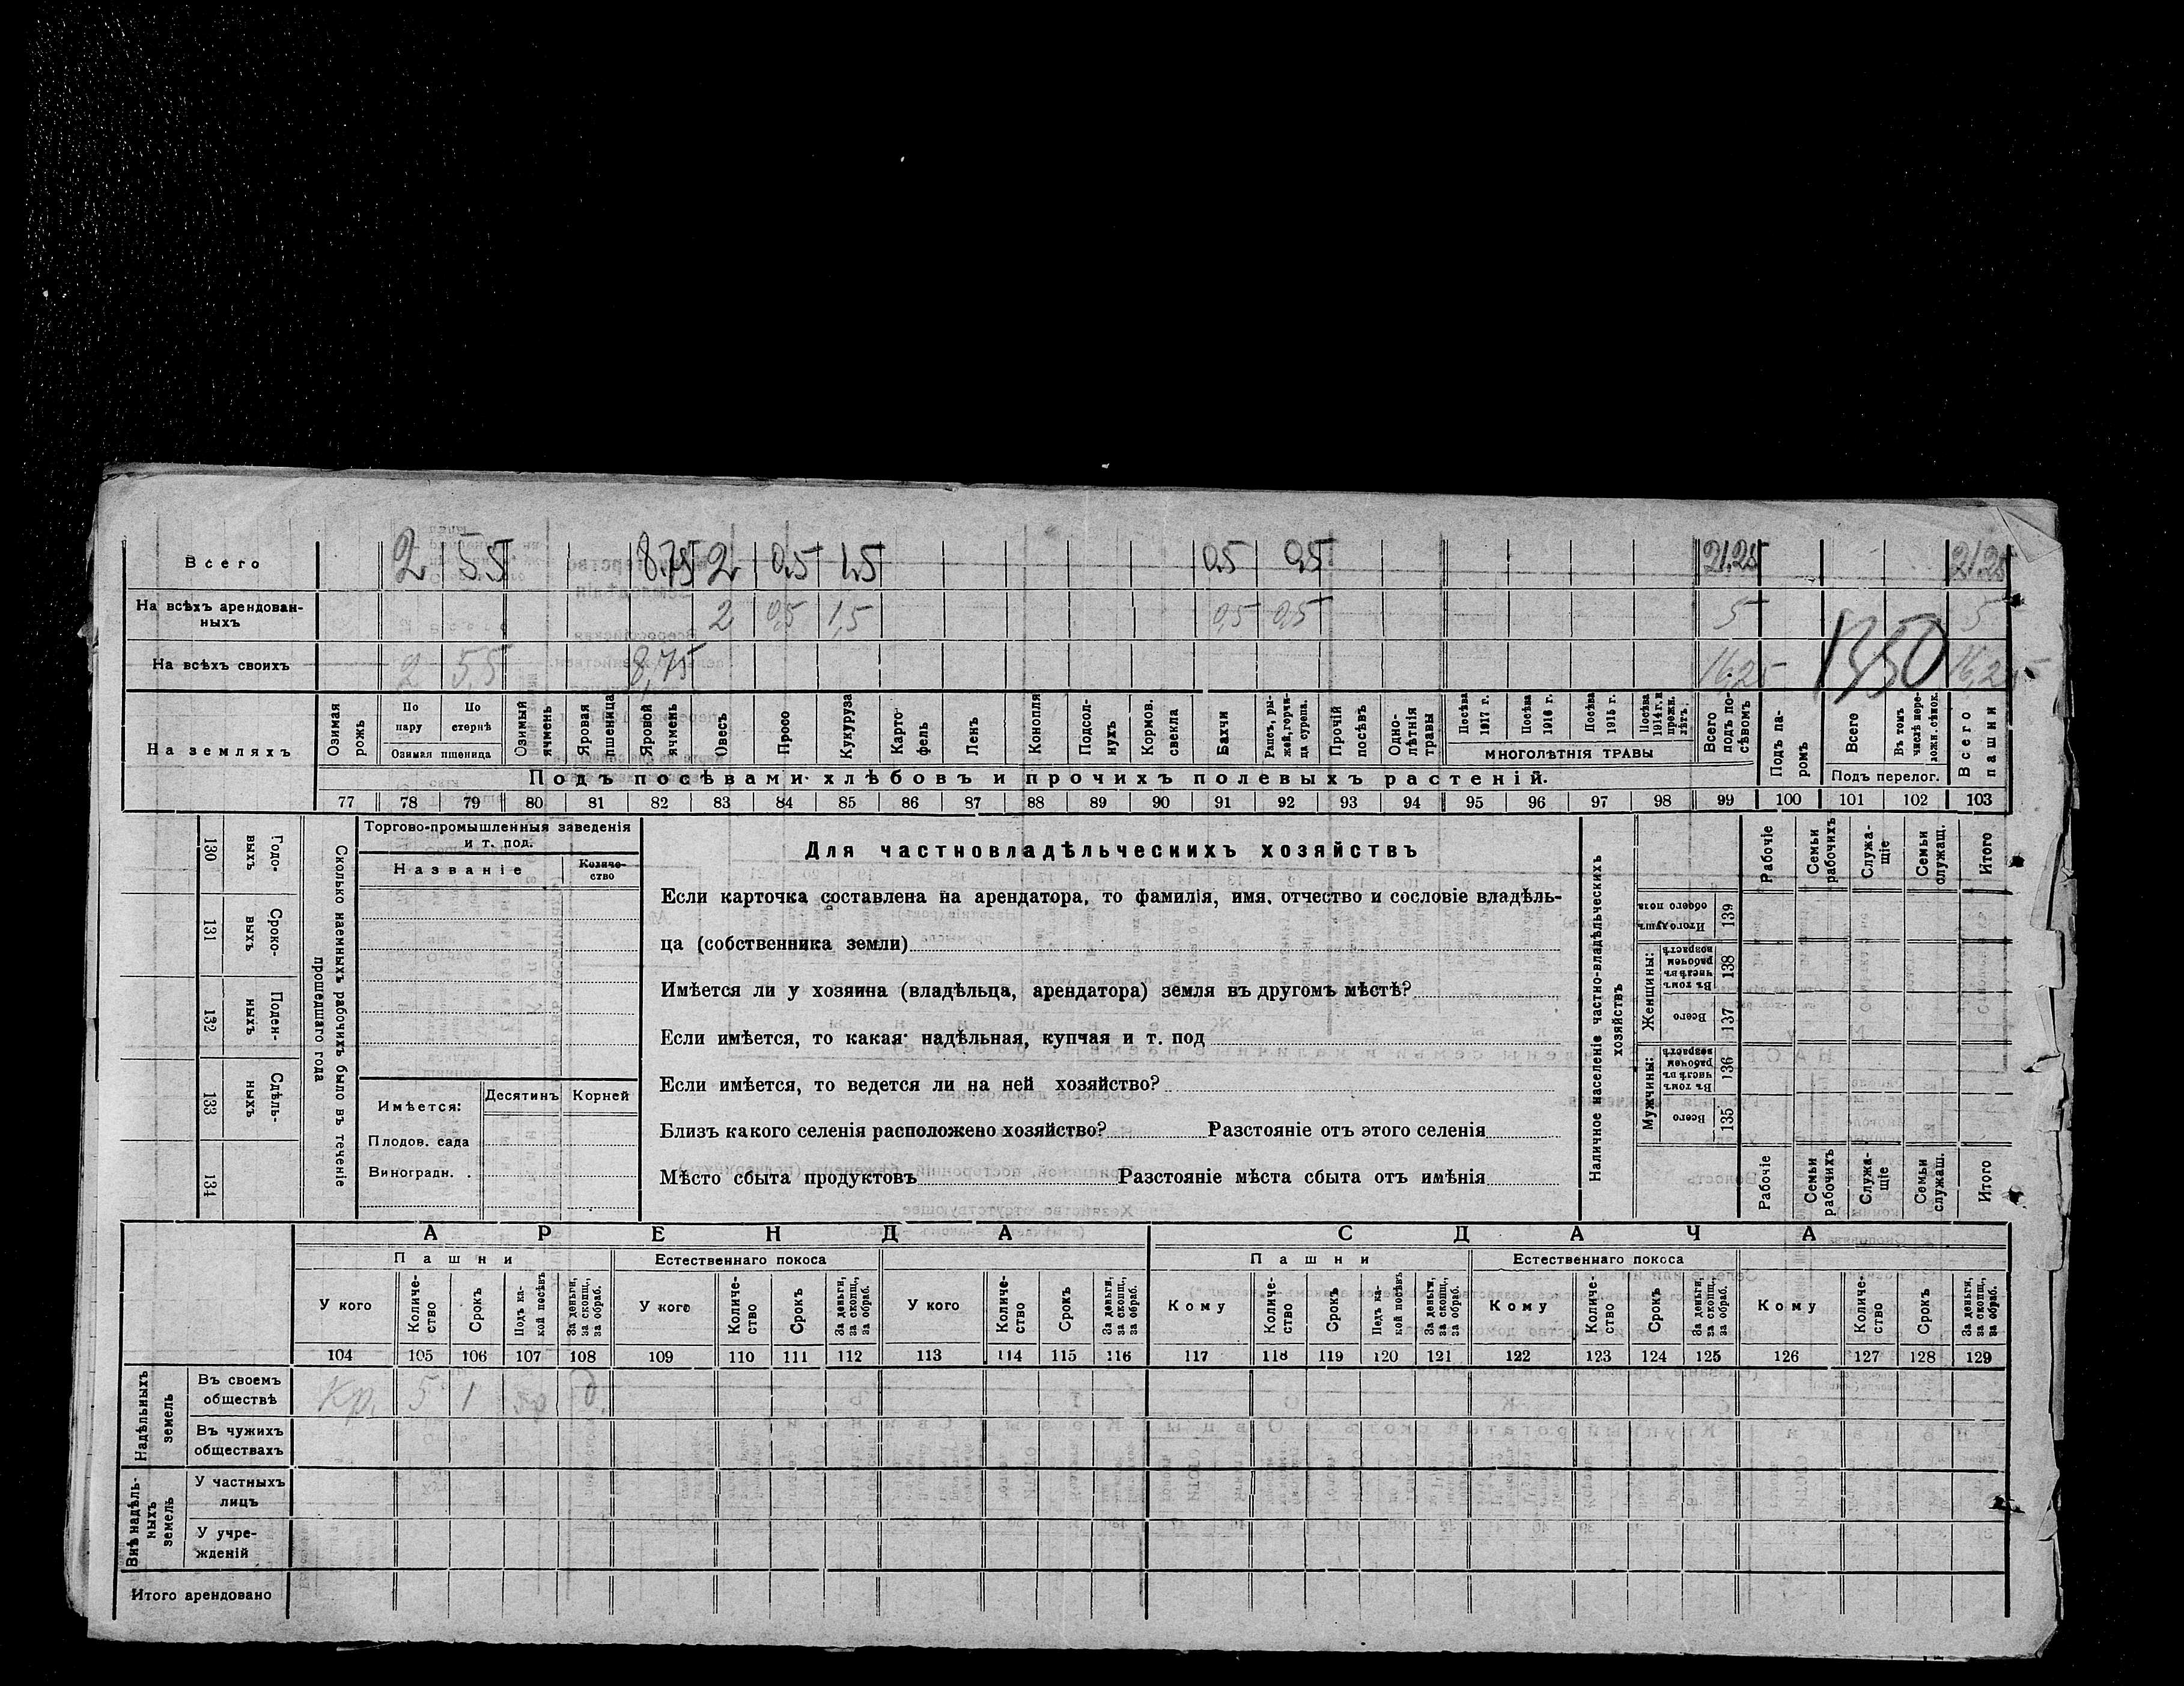 Всего 2 5.5 8.75 2 0,5 1,5 0,5 0,5 21.25 21.25
На всѣхъ арендован-
ныхъ 2 0,5 1,5 0,5 0,5 5 5
На всѣхъ своихъ 2 5,5 8,75 16,25 1350 16,25
На земляхъ
Озимая рожь
По пару
По стернѣ
Озимая пшеница
Озимый ячмень
Яровая пшеница
Яровой ячмень
Овесъ
Просо
Кукуруза
Карто-
фель
Ленъ
Конопля
Подсол-
нухъ
Кормов. свекла
Бахчи
Рапсъ, ры-
жей, горчи-
ца сурепа.
Прочій посѣвъ
Одно-
лѣтнія травы
Посѣва 1917 г.
Посѣва 1916 г.
Посѣва 1915 г.
Посѣва 1914 г. и прежн. лѣтъ.
МНОГОЛѢТНІЯ ТРАВЫ
Всего подъ по-
сѣвомъ
Подъ па-
ромъ
Всего
Въ томъ числѣ пере-
ложн. сѣнок.
Подъ перелог.
Всего пашни
Подъ посѣвами хлѣбовъ и прочихъ полевыхъ растеній.
77 78 79 80 81 82 83 84 85 86 87 88 89 90 91 92 93 94 95 96 97 98 99 100 101 102 103
130 Годо-
выхъ
131 Сроко-
выхъ
132 Поден-
ныхъ
133 Сдѣль-
ныхъ
134
Сколько наемныхъ рабочихъ было въ теченіе
прошедшаго года
Торгово-промышленныя заведенія
и т. под.
Названіе
Количе-
ство
Имѣется: Десятинъ Корней
Плодов. сада
Виноградн.
Для частновладѣльческихъ хозяйствъ
Если карточка составлена на арендатора, то фамилія, имя, отчество и сословіе владѣль-
ца (собственника земли)
Имѣется ли у хозяина (владѣльца, арендатора) земля въ другомъ мѣстѣ?
Если имѣется, то какая: надѣльная, купчая и т. под
Если имѣется, то ведется ли на ней хозяйство?
Близъ какого селенія расположено хозяйство? Разстояніе отъ этого селенія
Мѣсто сбыта продуктовъ Разстояніе мѣста сбыта отъ имѣнія
Наличное населеніе частно-владѣльческихъ
хозяйствъ
Рабочіе
Семьи рабочихъ
Служа-
щіе
Семьи служащ.
Итого
Итого душъ обоего пола 139
Женщины:
Въ томъ числѣ въ рабочемъ возрастѣ 138
Всего 137
Мужчины:
Въ томъ числѣ въ рабочемъ возрастѣ 136
Всего 135
Рабочіе
Семьи рабочихъ
Служа-
щіе
Семьи служащ.
Итого
АРЕНДА СДАЧА
Пашни Естественнаго покоса Пашни Естественнаго покоса
У кого
Количе-
ство
Срокъ
Подъ ка-
кой посѣвъ
За деньги, за скопщ., за обраб.
У кого
Количе-
ство
Срокъ
За деньги, за скопщ., за обраб.
У кого
Количе-
ство
Срокъ
За деньги, за скопщ., за обраб.
Кому
Количе-
ство
Срокъ
Подъ ка-
кой посѣвъ
За деньги, за скопщ., за обраб.
Кому
Количе-
ство
Срокъ
За деньги, за скопщ., за обраб.
Кому
Количе-
ство
Срокъ
За деньги, за скопщ., за обраб.
104 105 106 107 108 109 110 111 112 113 114 115 116 117 118 119 120 121 122 123 124 125 126 127 128 129
Надѣльныхъ
земель
Въ своемъ
обществѣ Кр. 5 1 яр д.
Въ чужихъ
обществахъ
Внѣ надѣль-
ныхъ
земель
У частныхъ
лицъ
У учре-
жденій
Итого арендовано